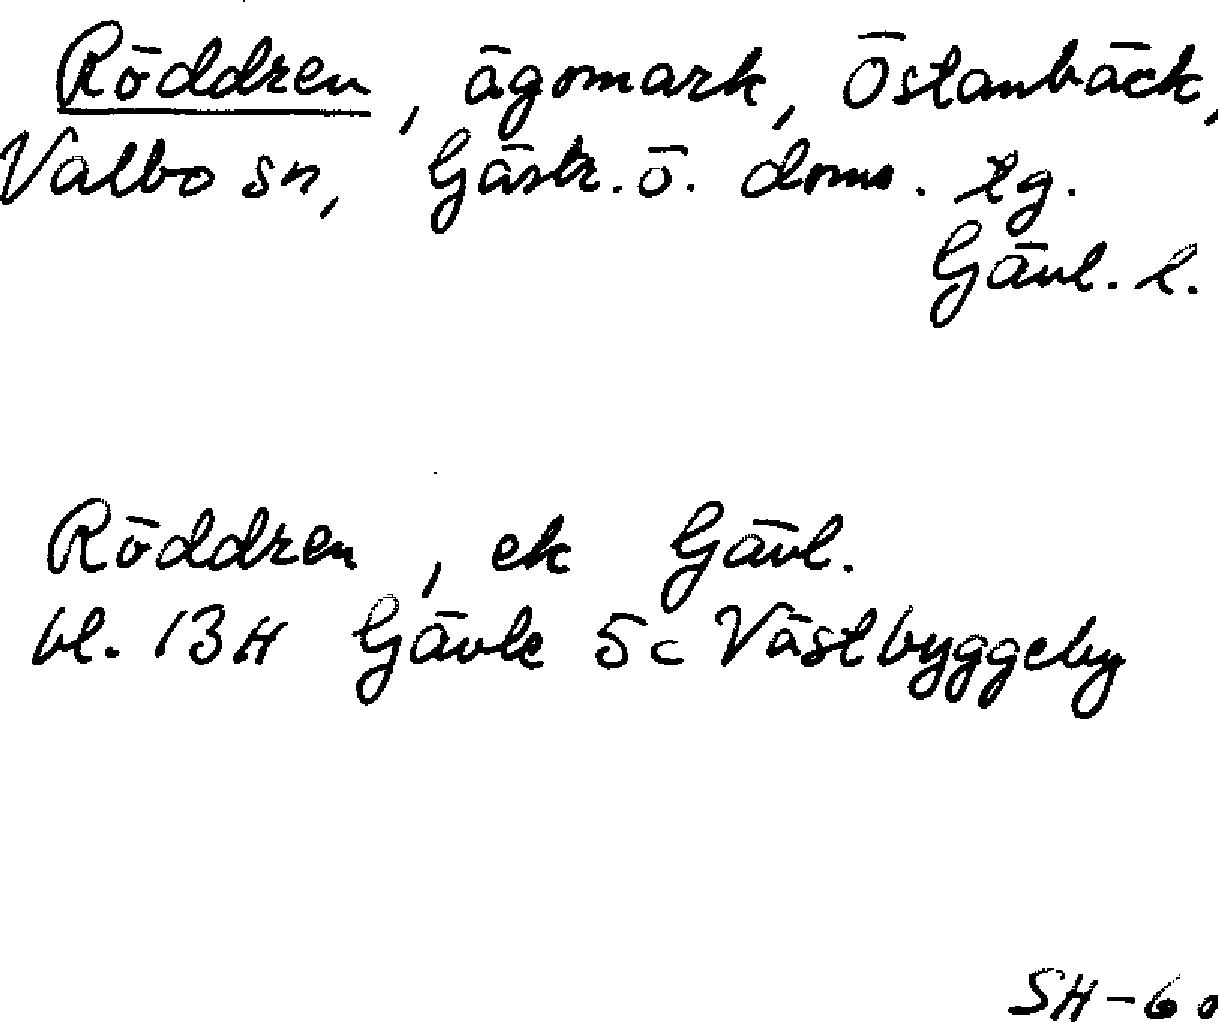 Röddren, ägomark, Östanbäck,
Valbo sn, Gästr. ö. doms. tg.
Gävl. l.
Röddren, ek Gävl.
bl. 13H Gävle 5c Västbyggeby
SH-60